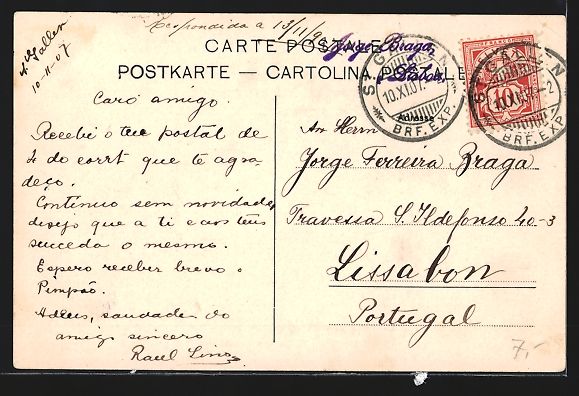 Respondida a 13/11/9
St Gallen
10-11-07
CARTE POSTALE
Jorge Braga
Lisboa
POSTKARTE — CARTOLINA POSTALE
ST. GALLEN
10.XI.07.
BRF. EXP.
ST. GALLEN
10.XI.07.
BRF. EXP.
10
Adresse
Caro amigo.
Recebi o teu postal de
4 do corrt que te agra-
deço.
Continuo sem novidade,
desejo que a ti e aos teus
succeda o mesmo.
Espero receber breve o
Pimpão.
Adeus, saudades do
amigo sincero
Raul Lino
An Herrn
Jorge Ferreira Braga
Travessa S. Ildefonso 40-3
Lissabon
Portugal
7,-